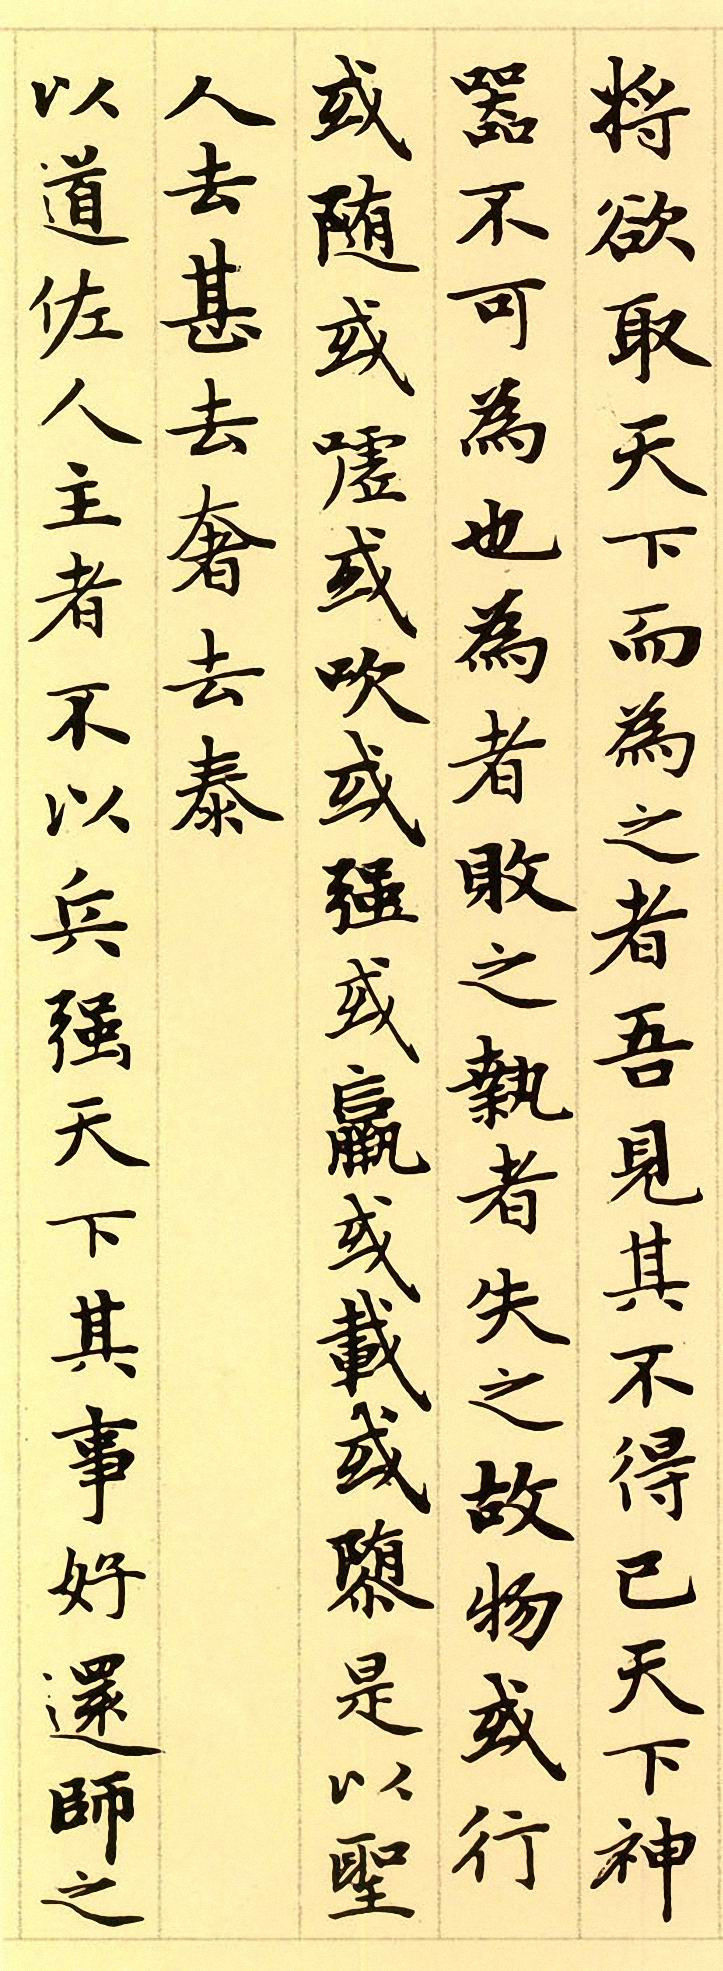 将欲取天下而為之者吾見其不得已天下神
器不可為也為者敗之執者失之故物或行
或随或嘘或吹或强或羸或載或隳是以聖
人去甚去奢去泰
以道佐人主者不以兵强天下其事好還師之